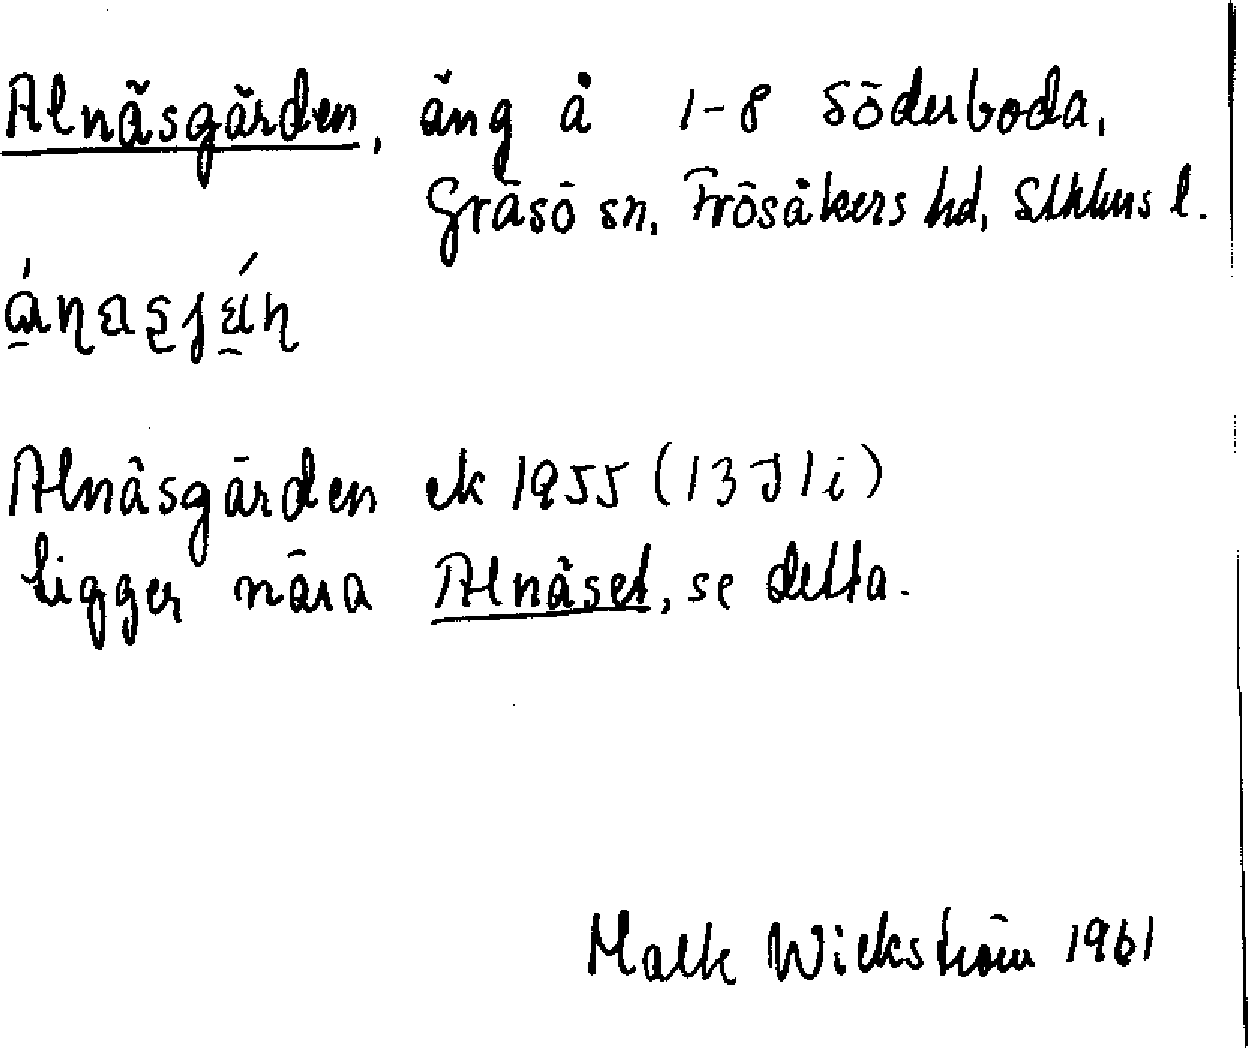 Alnäsgärden, äng å 1-8 Söderboda,
Gräsö sn, Frösåkers hd, Sthlms l.
Alnäsgärden ek 1955 (13J1i)
ligger nära Alnäset, se detta.
Wickström 1961